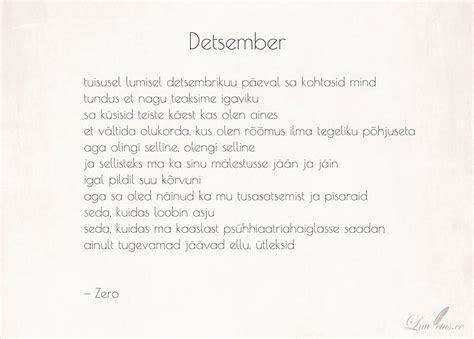 Detsember
tuisusel lumisel detsembrikuu päeval sa kohtasid mind
tundus et nagu teaksime igaviku
sa küsisid teiste käest kas olen aines
et vältida olukorda, kus olen rõõmus ilma tegeliku põhjuseta
aga olingi selline, olengi selline
ja sellisteks ma ka sinu mälestusse jään ja jäin
igal pildil suu kõrvuni
aga sa oled näinud ka mu tusasatsemist ja pisaraid
seda, kuidas loobin asju
seda, kuidas ma kaaslast psühhiaatriahaiglasse saadan
ainult tugevamad jäävad ellu, ütleksid
– Zero
Luuletus.ee